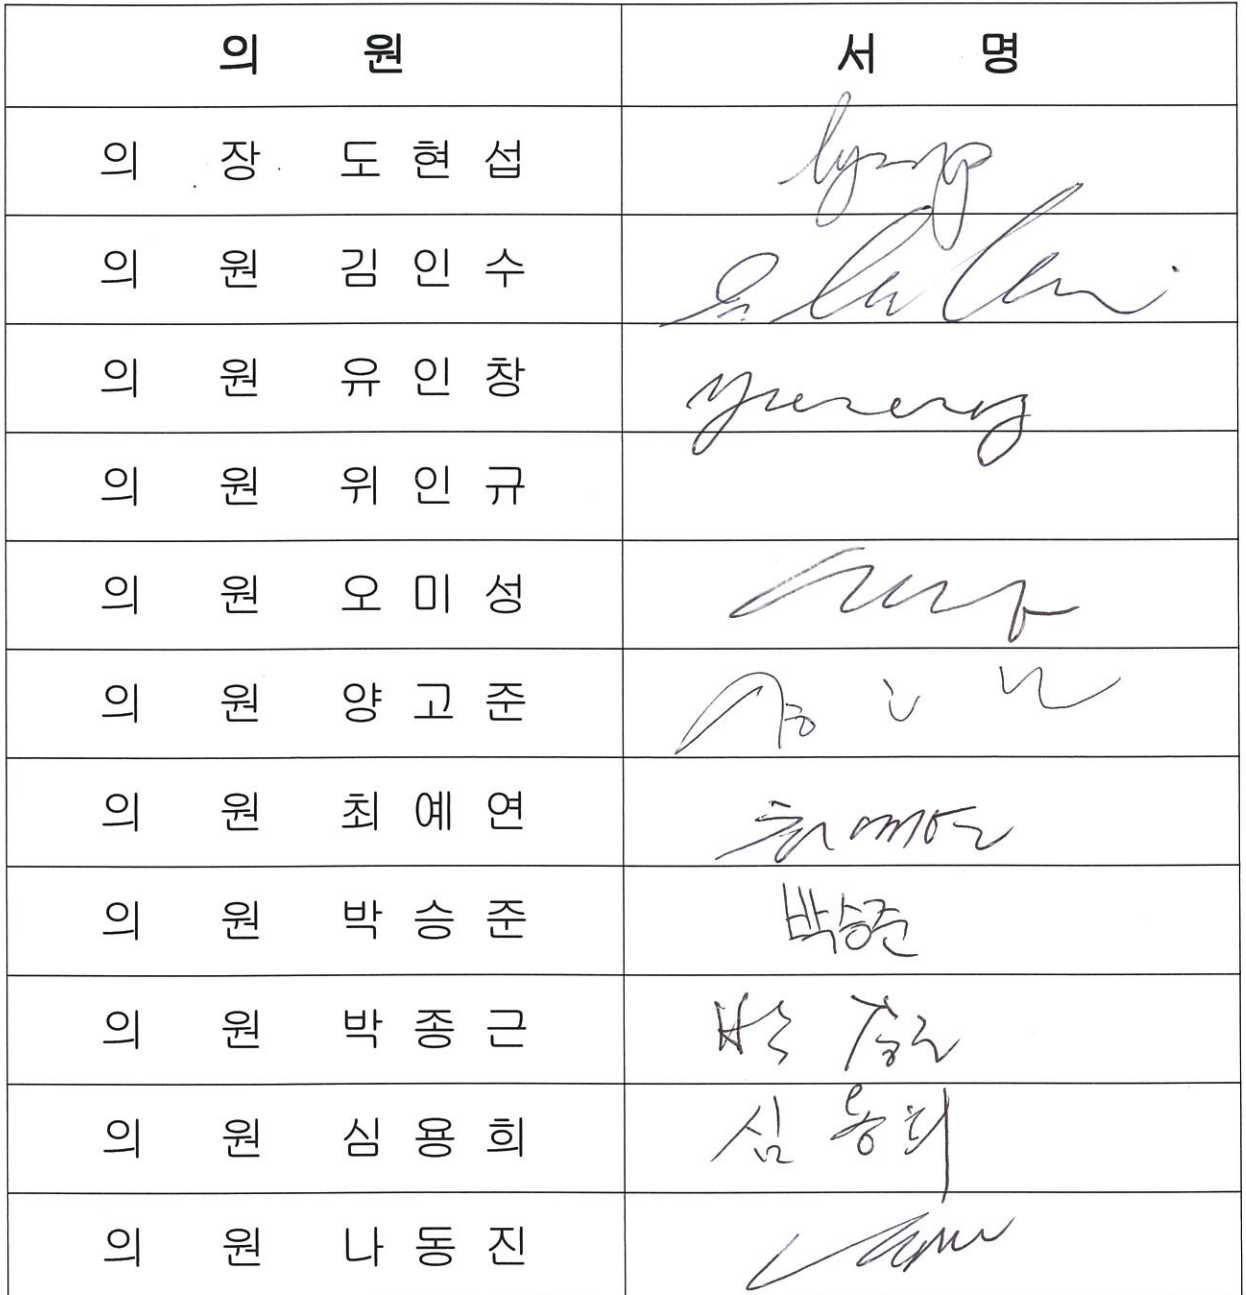 의 원 서 명
의 장 도 현 섭
의 원 김 인 수
의 원 유 인 창
의 원 위 인 규
의 원 오 미 성
의 원 양 고 준
의 원 최 예 연
의 원 박 승 준 박승준
의 원 박 종 근 박 종근
의 원 심 용 희 심 용희
의 원 나 동 진